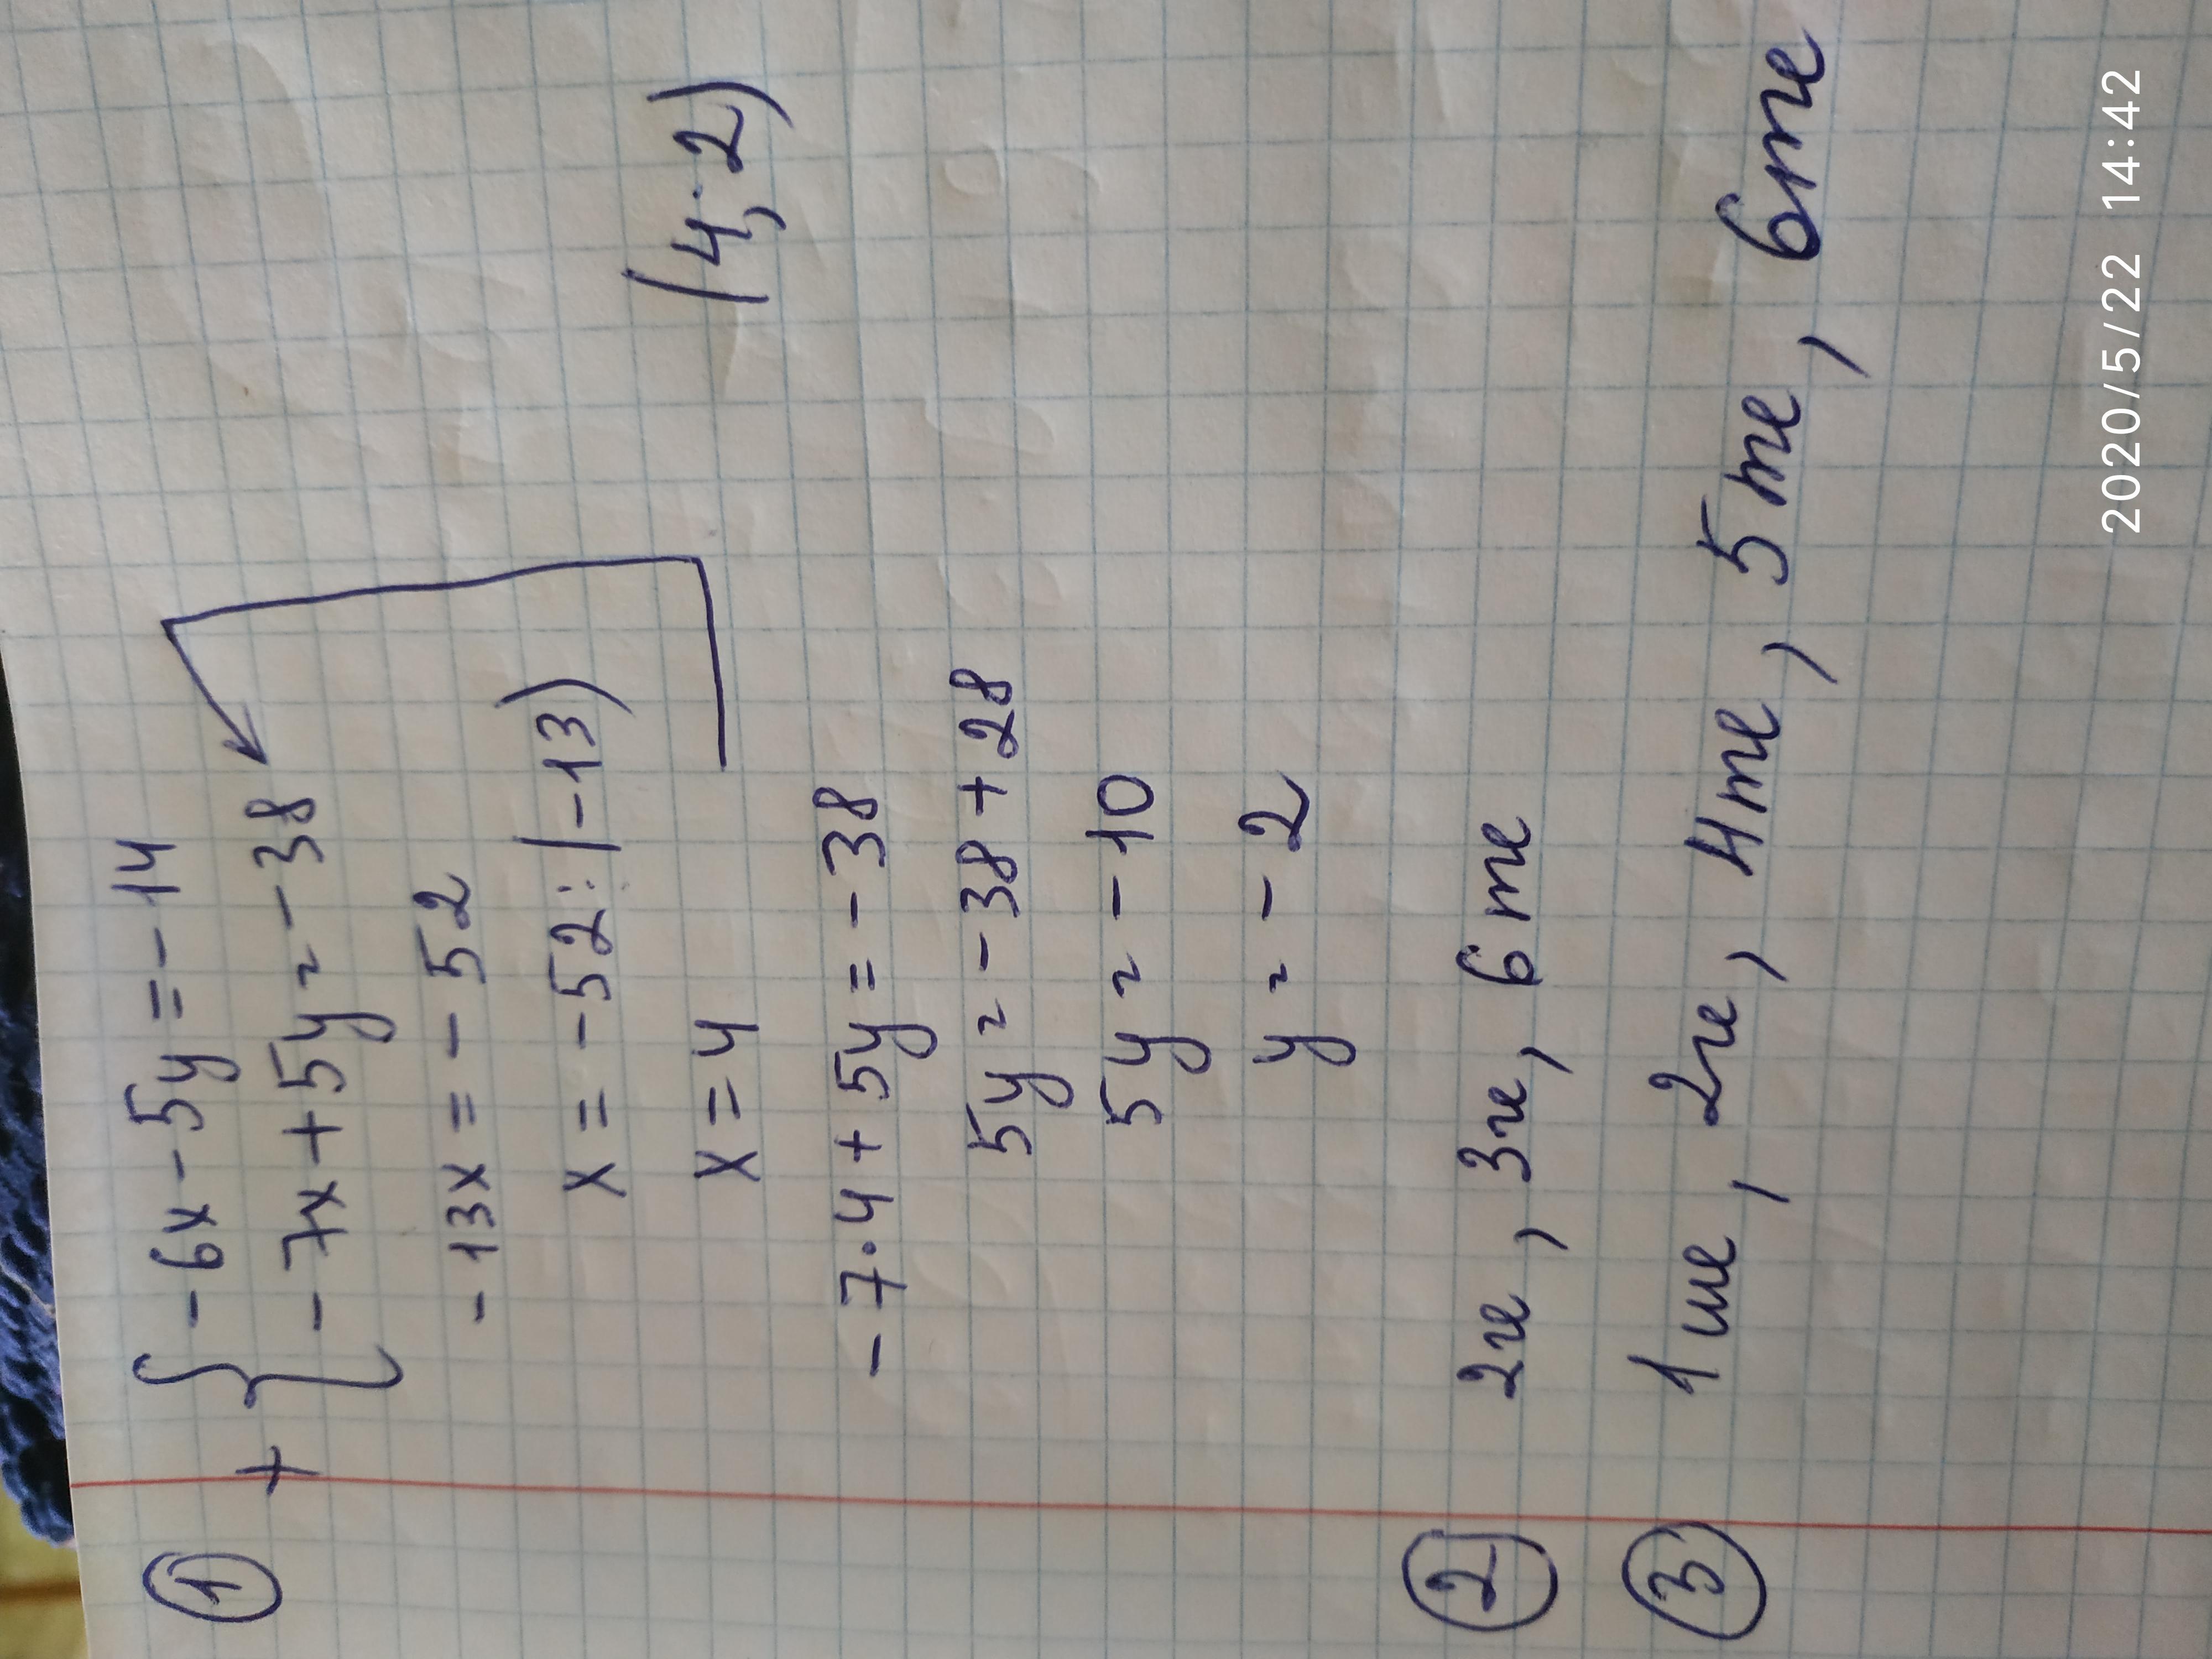 ①
+ { -6x - 5y = -14
-7x + 5y = -38
-13x = -52
x = -52:(-13)
x = 4
(4; 2)
-7·4 + 5y = -38
5y = -38 + 28
5y = -10
y = -2
② 2ге, 3ге, 6те
③ 1ше, 2ге, 4те, 5те, 6те
2020/5/22 14:42